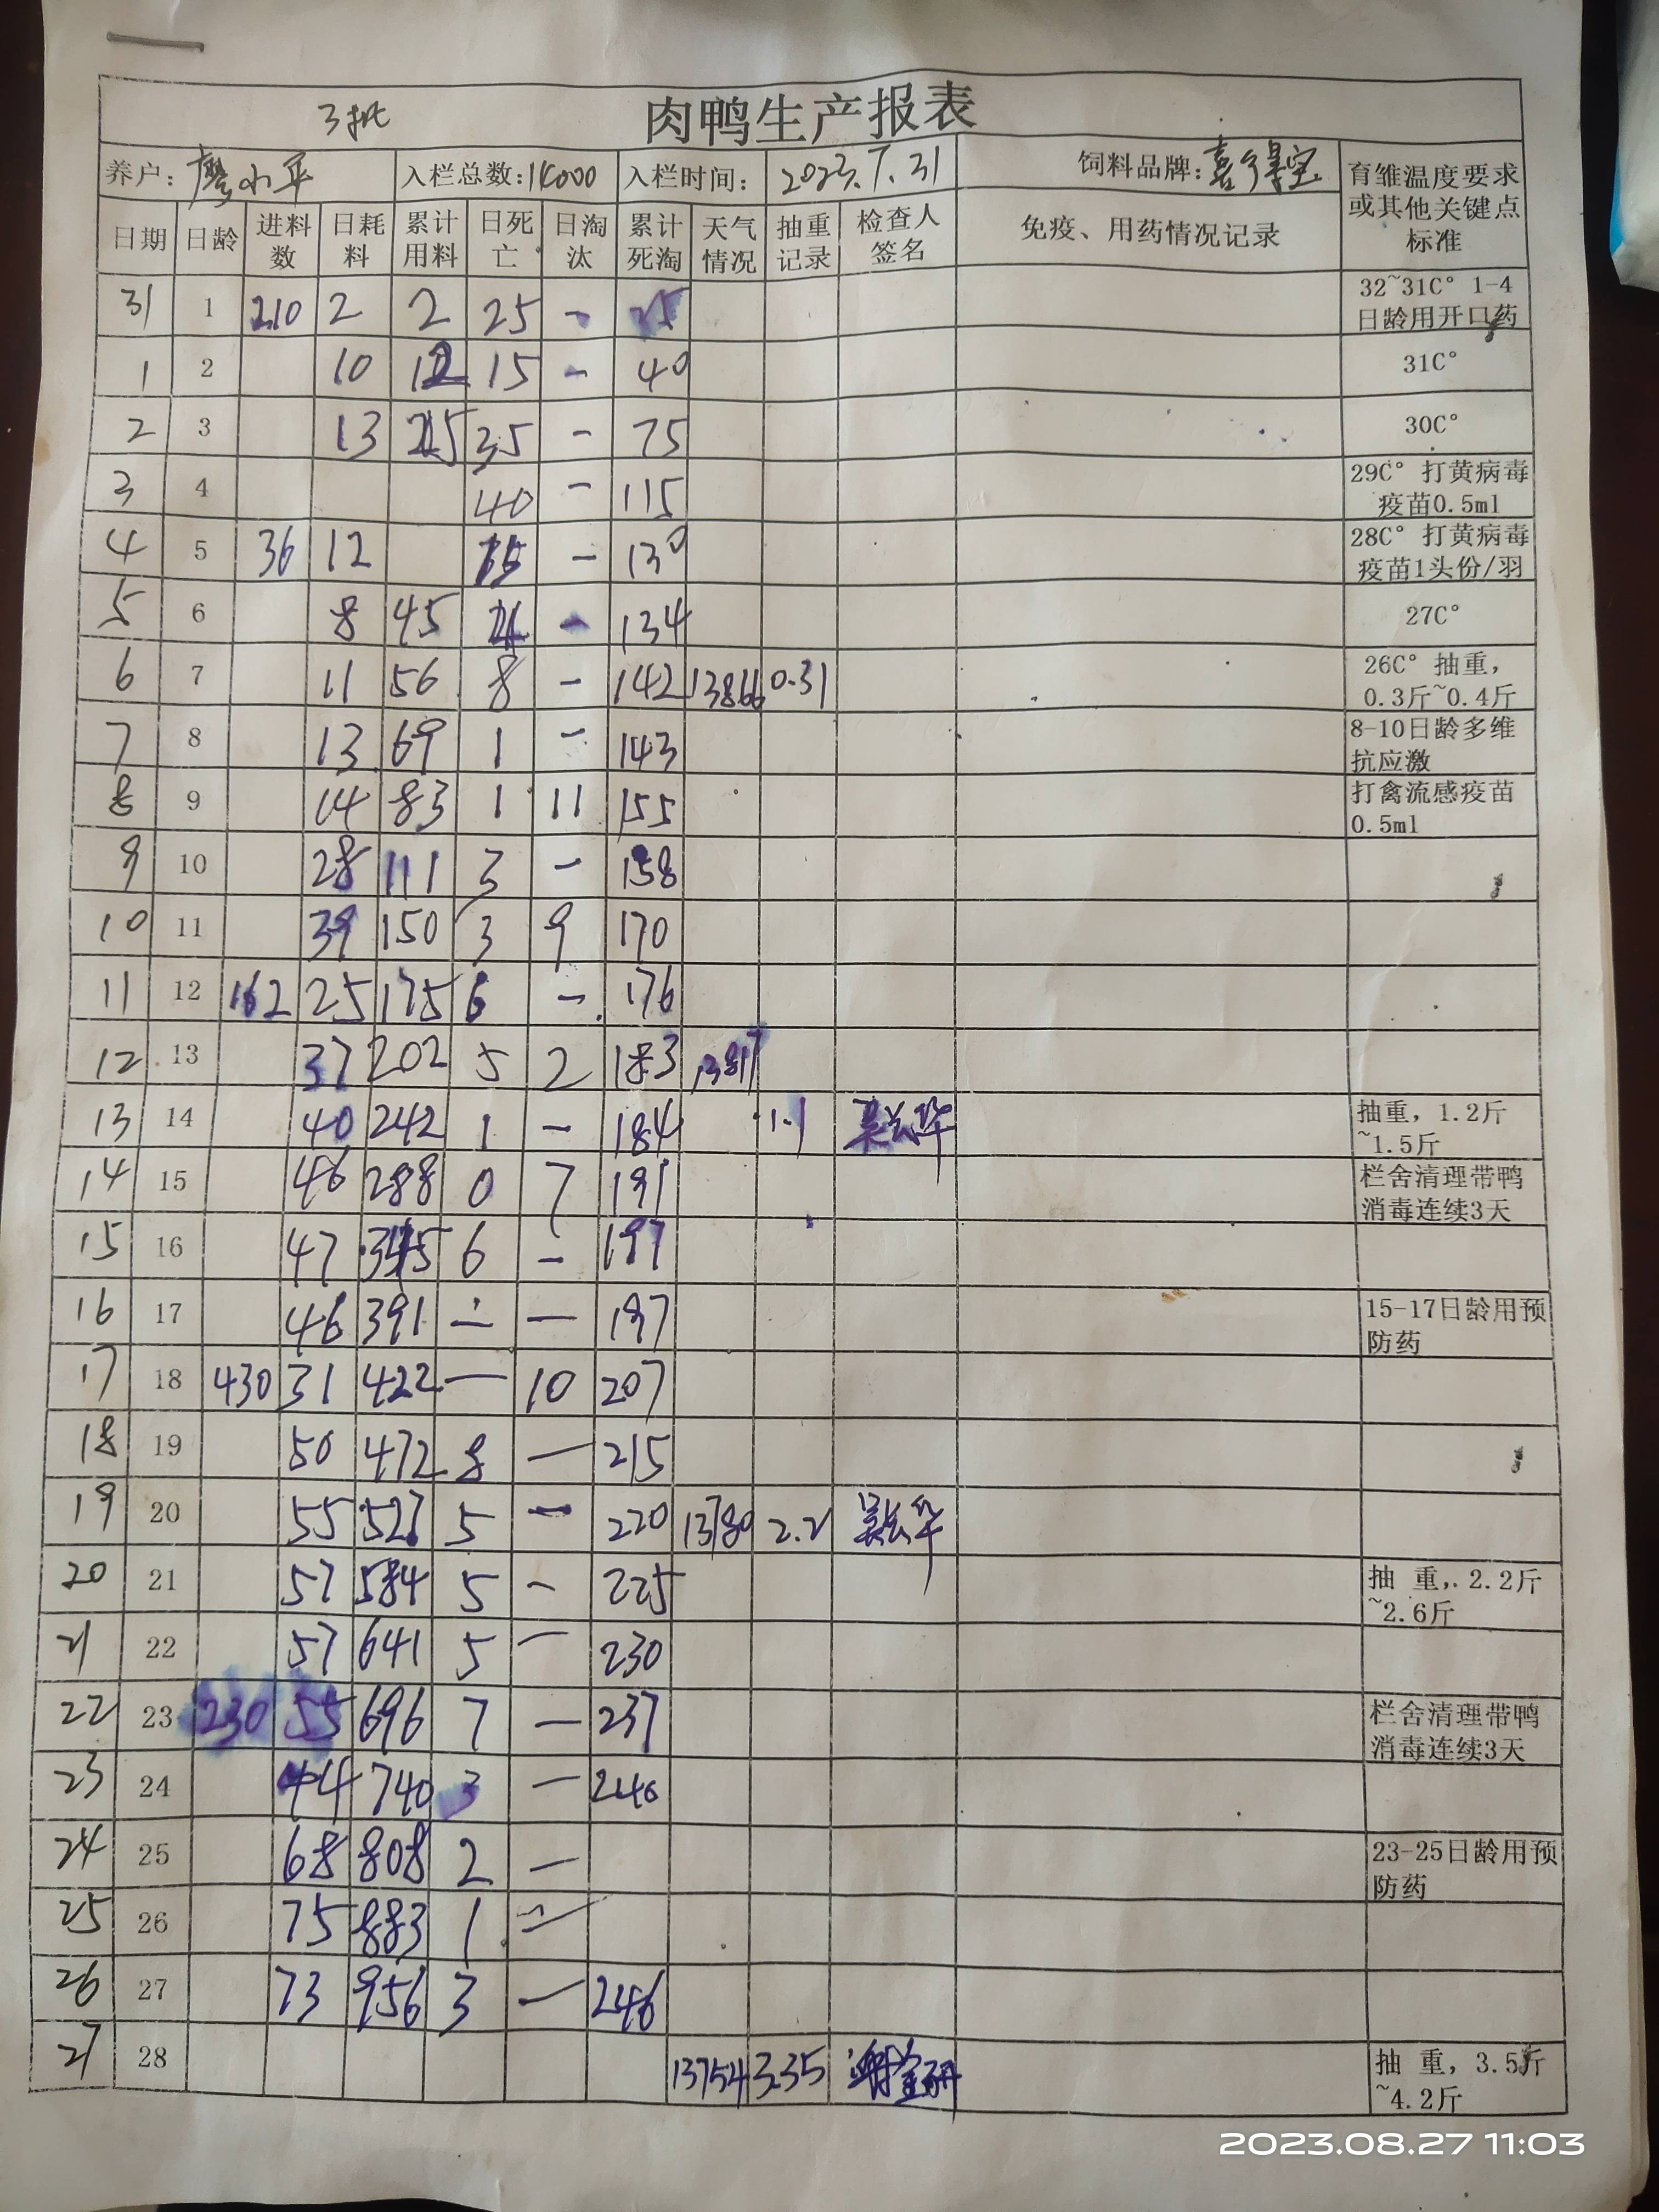 3批 肉鸭生产报表
养户: 廖小平 入栏总数:14000 入栏时间: 2023.7.31 饲料品牌: 育雏温度要求或其他关键点标准
日期 日龄 进料数 日耗料 累计用料 日死亡 日淘汰 累计死淘 天气情况 抽重记录 检查人签名 免疫、用药情况记录
31 1 210 2 2 25 - 25 32~31C° 1-4日龄用开口药
1 2 10 12 15 - 40 31C°
2 3 13 25 35 - 75 30C°
3 4 40 - 115 29C° 打黄病毒疫苗0.5ml
4 5 36 12 15 - 130 28C° 打黄病毒疫苗1头份/羽
5 6 8 45 4 - 134 27C°
6 7 11 56 8 - 142 13866 0.31 26C° 抽重，0.3斤~0.4斤
7 8 13 69 1 - 143 8-10日龄多维抗应激
8 9 14 83 1 11 155 打禽流感疫苗0.5ml
9 10 28 111 3 - 158
10 11 39 150 3 9 170
11 12 162 25 175 6 - 176
12 13 37 202 5 2 183 13817
13 14 40 242 1 - 184 1.1 抽重，1.2斤~1.5斤
14 15 46 288 0 7 191 栏舍清理带鸭消毒连续3天
15 16 47 345 6 - 197
16 17 46 391 - - 197 15-17日龄用预防药
17 18 430 31 422 - 10 207
18 19 50 472 8 - 215
19 20 55 527 5 - 220 13780 2.2
20 21 57 584 5 - 225 抽 重，2.2斤~2.6斤
21 22 57 641 5 - 230
22 23 230 55 696 7 - 237 栏舍清理带鸭消毒连续3天
23 24 44 740 3 - 240
24 25 68 808 2 - 23-25日龄用预防药
25 26 75 883 1 -
26 27 73 956 3 - 246
27 28 13754 3.35 抽 重，3.5斤~4.2斤
2023.08.27 11:03